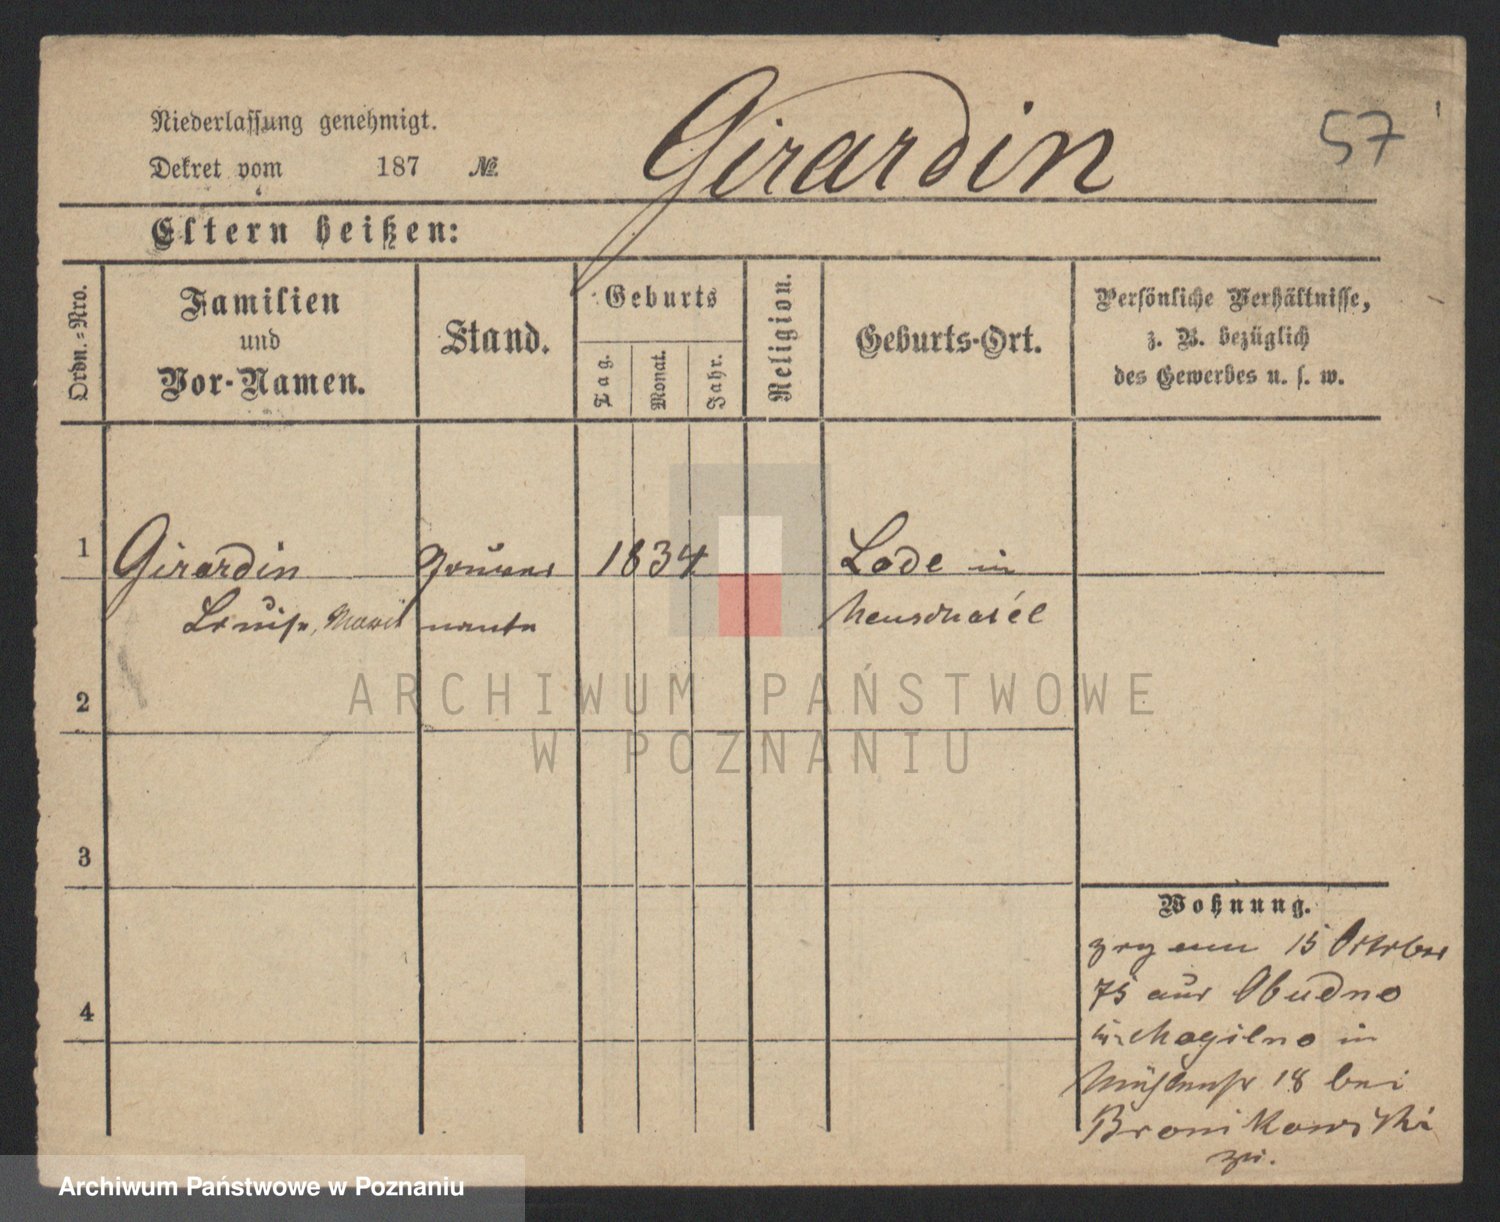 Niederlassung genehmigt.
Dekret vom 187 №.
Girardin
57
Eltern heißen:
Ordn.-Nro.
Familien
und
Vor-Namen.
Stand.
Geburts
Tag.
Monat.
Jahr.
Religion.
Geburts-Ort.
Persönliche Verhältnisse,
z. B. bezüglich
des Gewerbes u. s. w.
1 Girardin Gouver 1834 Lode in
Louise, Marie nante
2
3
4
Wohnung.
zog am 15 October
75 aus Obudno
Kr. Mogilno in
Mühlenstr 18 bei
Bronikowski
zu.
ARCHIWUM PAŃSTWOWE
W POZNANIU
Archiwum Państwowe w Poznaniu